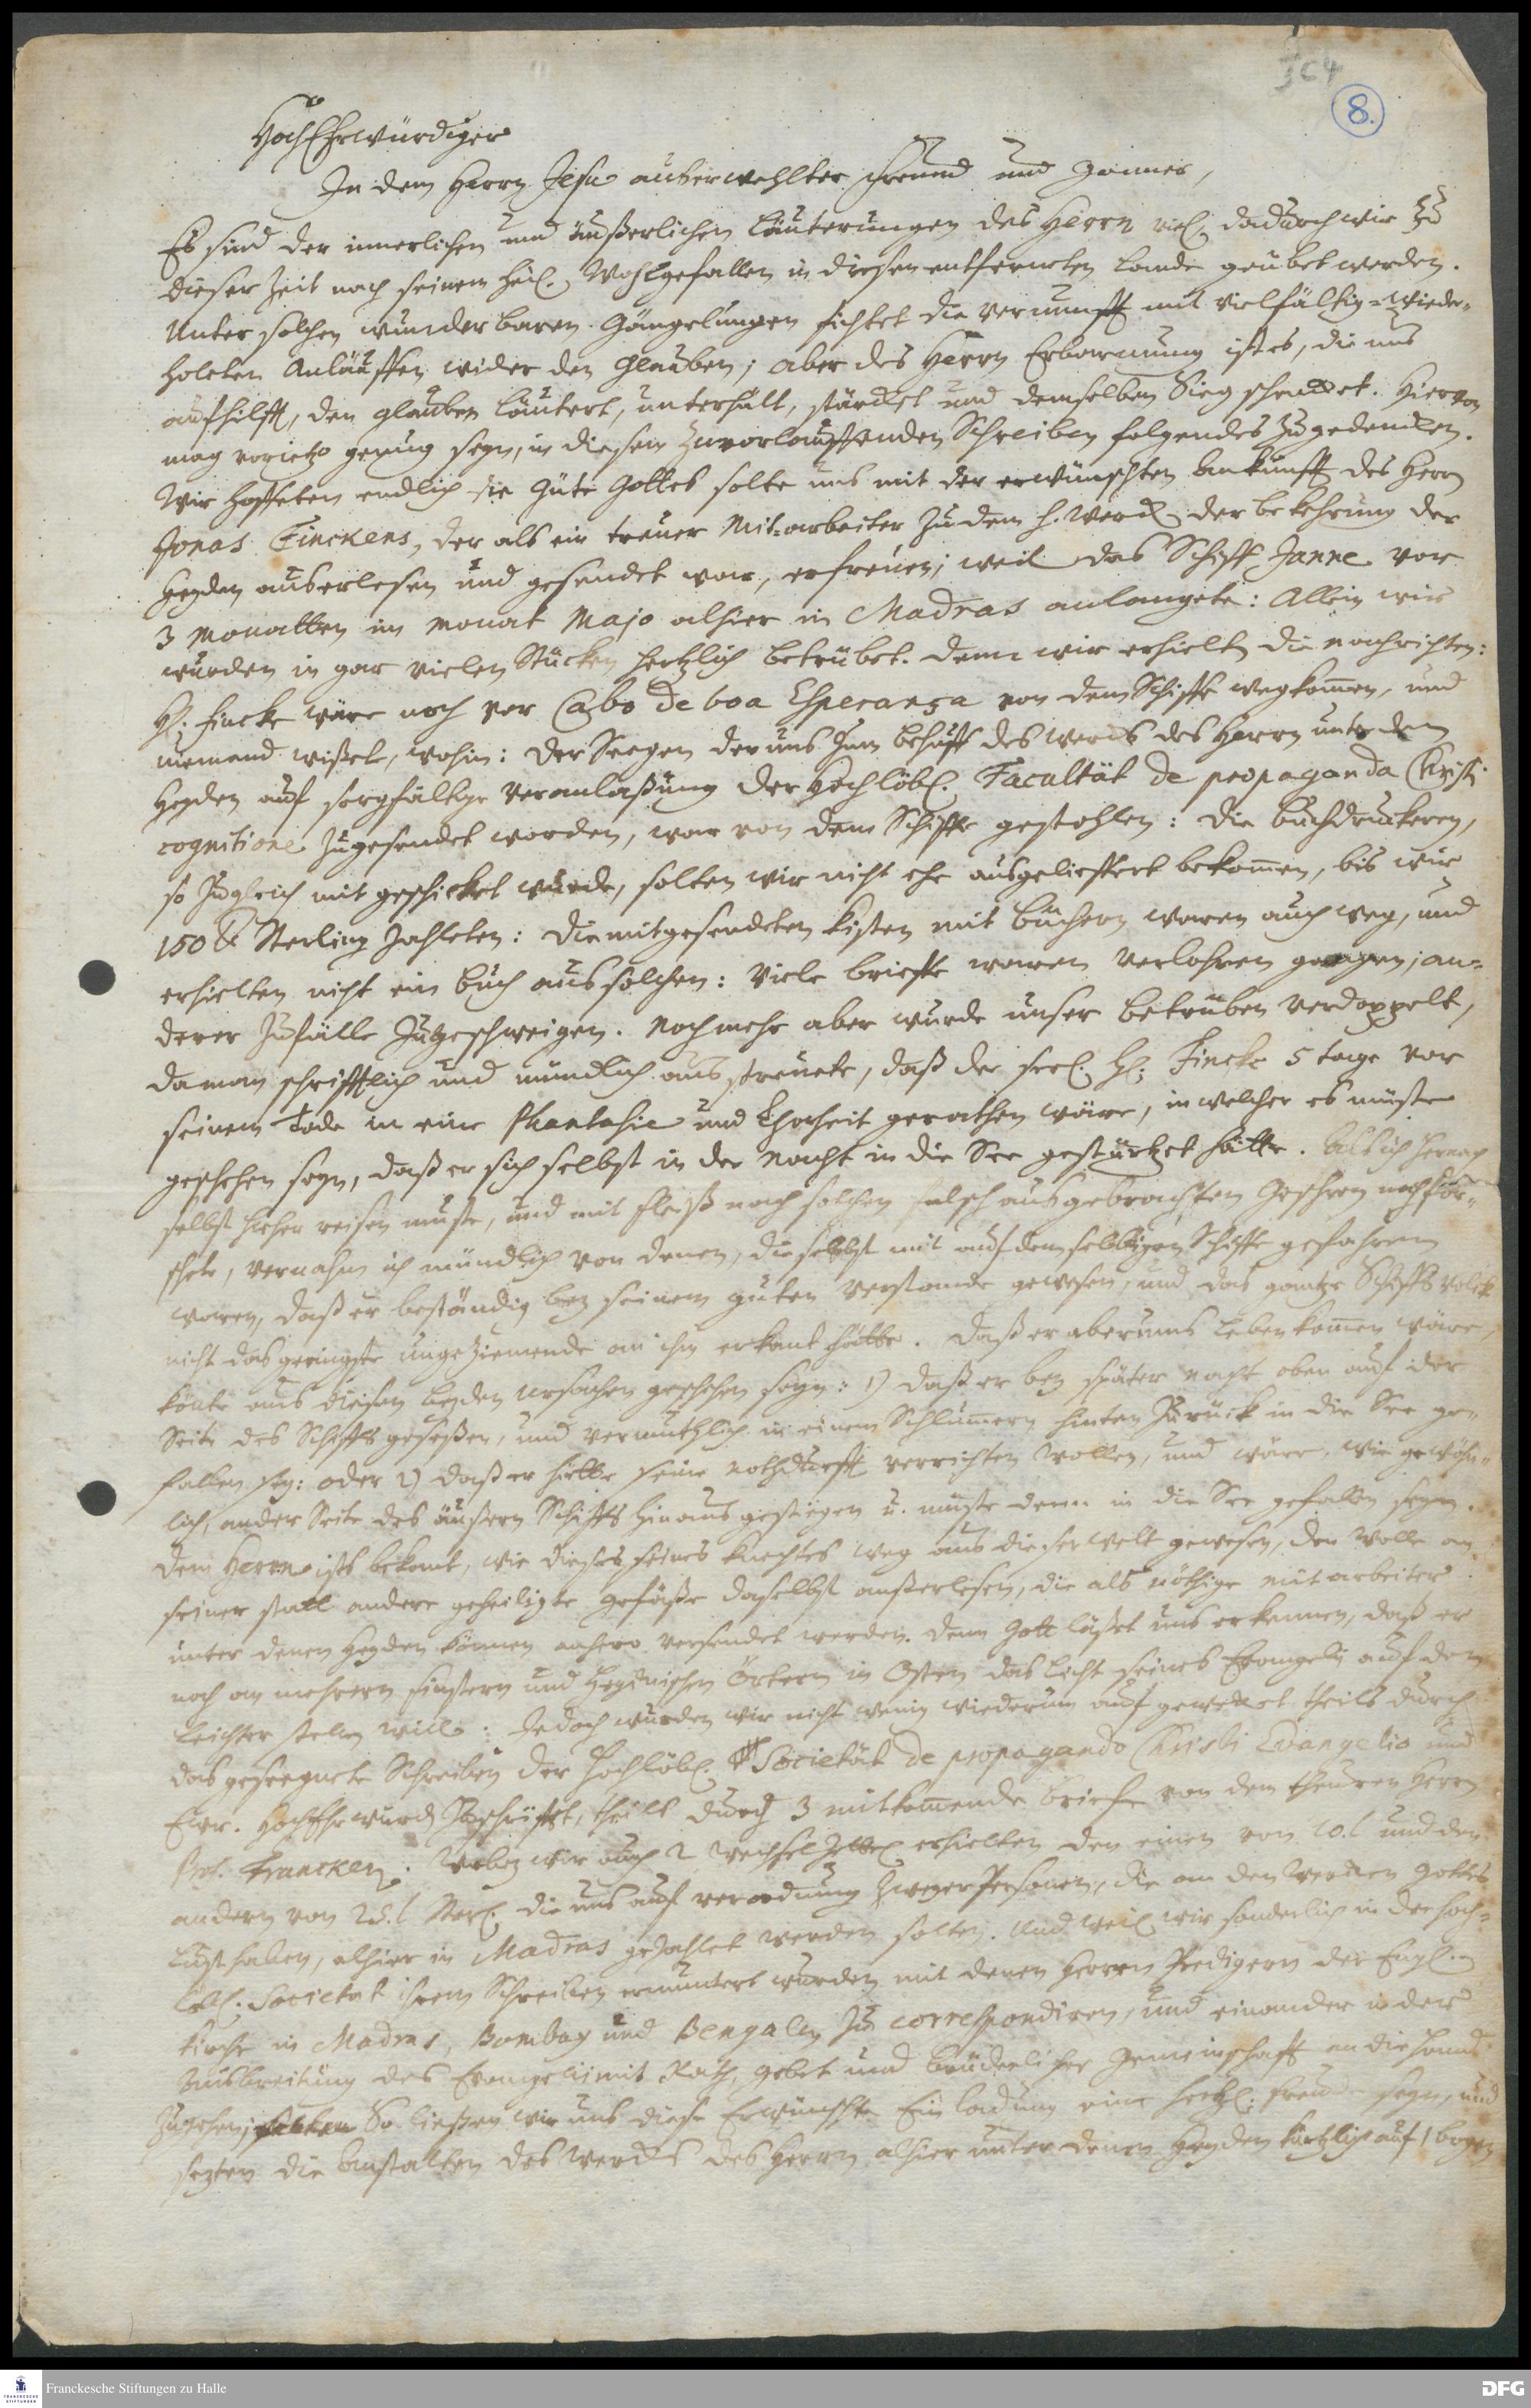 364
8.
HochEhrwürdiger
In dem Herrn Jesu außerwehlter Freund und Gönner,
Es sind der innerlichen und äußerlichen Läuterungen des Herrn viel, dadurch wir zu
dieser Zeit nach seinem heil. Wohlgefallen in diesen entferneten Lande geübet werden.
Unter solchen wunderbaren Gängelungen fichtet die Vernunfft mit vielfältig-wieder-
holeten Anläuffen wider den Glauben; aber des Herrn Erbarmung ist es, die uns
aufhilfft, den Glauben läutert, unterhält, stärcket und demselben Sieg schencket. Hiervon
mag vorietzo genug seyn, in diesem zuvorlauffenden Schreiben folgendes zu gedencken.
Wir hoffeten endlich die Güte Gottes solte uns mit der erwünschten Ankunfft des Herrn
Jonas Finckens, der als ein treuer Mit-arbeiter zu dem h. Werck der bekehrung der
Heyden auserlesen und gesendet war, erfreuen; weil das Schiff Janne vor
3 Monatten im Monat Majo alhier in Madras anlangete: Allein wir
wurden in gar vielen Stücken hertzlich betrübet. denn wir erhielten die nachrichten:
H. Fincke wäre noch vor Cabo de boa Esperança von dem Schiffe wegkommen, und
niemand wißete, wohin: der Seegen der uns zum behuff des wercks des Herrn unter den
Heyden auf sorgfältige Veranlaßung der Hochlöbl. Facultät de propaganda Christi
cognitione zugesendet worden, war von dem Schiffe gestohlen: die buchdruckerey,
so zugleich mit geschicket wurde, solten wir nicht ehe ausgelieffert bekommen, bis wir
150 £ Sterling zahleten: die mitgesendeten kisten mit büchern waren auch weg, und
erhielten nicht ein buch aus solchen: Viele brieffe waren verlohren gegangen; an-
derer Zufälle zu geschweigen. Noch mehr aber wurde unser betrüben verdoppelt,
da man schrifftlich und mündlich ausstreuete, daß der seel. H. Fincke 5 tage vor
seinem Tode in eine Phantasie und Thorheit gerathen wäre, in welcher es müste
geschehen seyn, daß er sich selbst in der Nacht in die See gestürtzet hätte. Als ich hernach
selbst hieher reisen muste, und mit Fleiß nach solchen falsch ausgebrachten Geschrey nachfor-
schete, vernahm ich mündlich von denen, die selbst mit auf demselbigen Schiffe gefahren
waren, daß er beständig bey seinem guten Verstande gewesen, und das gantze Schiffs volck
nicht das geringste ungeziemende an ihm erkant hätte. Daß er aber ums Leben kommen wäre,
könte aus diesen beyden Ursachen geschehen seyn: 1) daß er bey später Nacht oben auf der
Seite des Schiffs geseßen, und vermuthlich in einem Schlummern hinten zurück in die See ge-
fallen sey: oder 2) daß er hätte seine Nothdurfft verrichten wollen, und wäre, wie gewöhn-
lich, an der Seite des äußern Schiffs hinaus gestiegen u. müste denn in die See gefallen seyn.
Dem Herrn ists bekant, wie dieses seines Knechtes Weg aus dieser welt gewesen, der wolle an
seiner statt andere geheiligte Gefäße daselbst außerlesen, die als nöthige mitarbeiter
unter denen Heyden können anhero versendet werden. Denn Gott läßet uns erkennen, daß er
noch an mehrern finstern und Heydnischen Örtern in Osten das Licht seines Evangelii auf den
Leichter stellen will: Jedoch wurden wir nicht wenig wiederum aufgewecket theils durch
das geseegnete Schreiben der Hochlöbl. Societät de propagando Christi Evangelio und
Ewr. HochEhrwürd. Zuschrifft, theils durch 3 mitkommende Briefe von dem theuren Herrn
Prof. Francken. Wobey wir auch 2 Wechselzettel erhielten den einen von 10. l und den
andern von 25. l Sterl. die uns auf verordnung zweyer Personen, die an den Wercken Gottes
Lust haben, alhier in Madras gezahlet werden solten. Und weil wir sonderlich in der Hoch-
löbl. Societat ihrem Schreiben ermuntert wurden mit denen Herren Predigern der Engl.
Kirche in Madras, Bombay und Bengalen zu correspondiren, und einander in der
Ausbreitung des Evangelii mit Rath, gebet und brüderlicher Gemeinschafft an die Hand
zu gehen; So ließen wir uns diese Erwünschte Einladung eine hertzl. freude seyn, und
setzten die Anstalten des Wercks des Herrn alhier unter denen Heyden kürtzlich auf 1 bogen
FRANCKESCHE STIFTUNGEN
Franckesche Stiftungen zu Halle
DFG